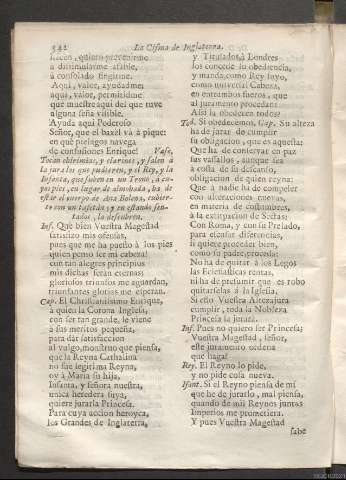 342
La Cisma de Inglaterra.
hacen, quiero prevenirme
a dissimularme afable,
à consolado fingirme.
Aqui, valor, ayudadme;
aqui, valor, permitidme
que muestre aqui del que tuve
alguna seña visible.
Ayuda aqui Poderoso
Señor, que el baxèl và à pique:
en què pielagos navega
de confusiones Enrique! Vase.
Tocan chirimias, y clarines, y salen à
la jura los que pudieren, y el Rey, y la
Infanta, que suben en un Trono, à cu-
yos pies, en lugar de almohada, ha de
estàr el cuerpo de Ana Bolena, cubier-
to con un tafetàn, y en estando sen-
tados, la descubren.
Inf. Què bien Vuestra Magestad
satisfizo mis ofensas,
pues que me ha puesto à los pies
quien pensò ser mi cabeza!
con tan alegres principios
mis dichas seràn eternas;
gloriosos triunfos me aguardan,
triunfantes glorias me esperan.
Cap. El Christianissimo Enrique,
à quien la Corona Inglesa,
con ser tan grande, le viene
à sus meritos pequeña,
para dàr satisfaccion
al vulgo, monstruo que piensa,
que la Reyna Cathalina
no fue legitima Reyna,
oy à Maria su hija,
Infanta, y señora nuestra,
unica heredera suya,
quiere jurarla Princesa.
Para cuya accion heroyca,
los Grandes de Inglaterra,
y Titulados, à Londres
los concede su obediencia,
y manda, como Rey suyo,
como universal Cabeza,
en entrambos fueros, que
al juramento procedan:
Assi la obedeceis todos?
Tod. Sì obedecemos. Cap. Su alteza
ha de jurar de cumplir
su obligacion, que es aquesta:
Que ha de conservar en paz
sus vassallos, aunque sea
à costa de su descanso,
obligacion de quien reyna:
Que à nadie ha de compeler
con alteraciones nuevas,
en materia de costumbres,
à la extirpacion de Sectas:
Con Roma, y con su Prelado,
para escusar diferencias,
si quiere proceder bien,
como su padre, proceda:
No ha de quitar à los Legos
las Eclesiasticas rentas,
ni ha de presumir que es robo
quitarlas à la Iglesia.
Si esto Vuestra Alteza jura
cumplir, toda la Nobleza
Princesa la jurarà.
Inf. Pues no quiero ser Princesa;
Vuestra Magestad, señor,
este juramento ordena
que haga?
Rey. El Reyno lo pide,
y no pide cosa nueva.
Inf. Si el Reyno piensa de mì
que he de jurarlo, mal piensa,
quando de mil Reynos juntos
Imperios me prometiera.
Y pues Vuestra Magestad
sabe